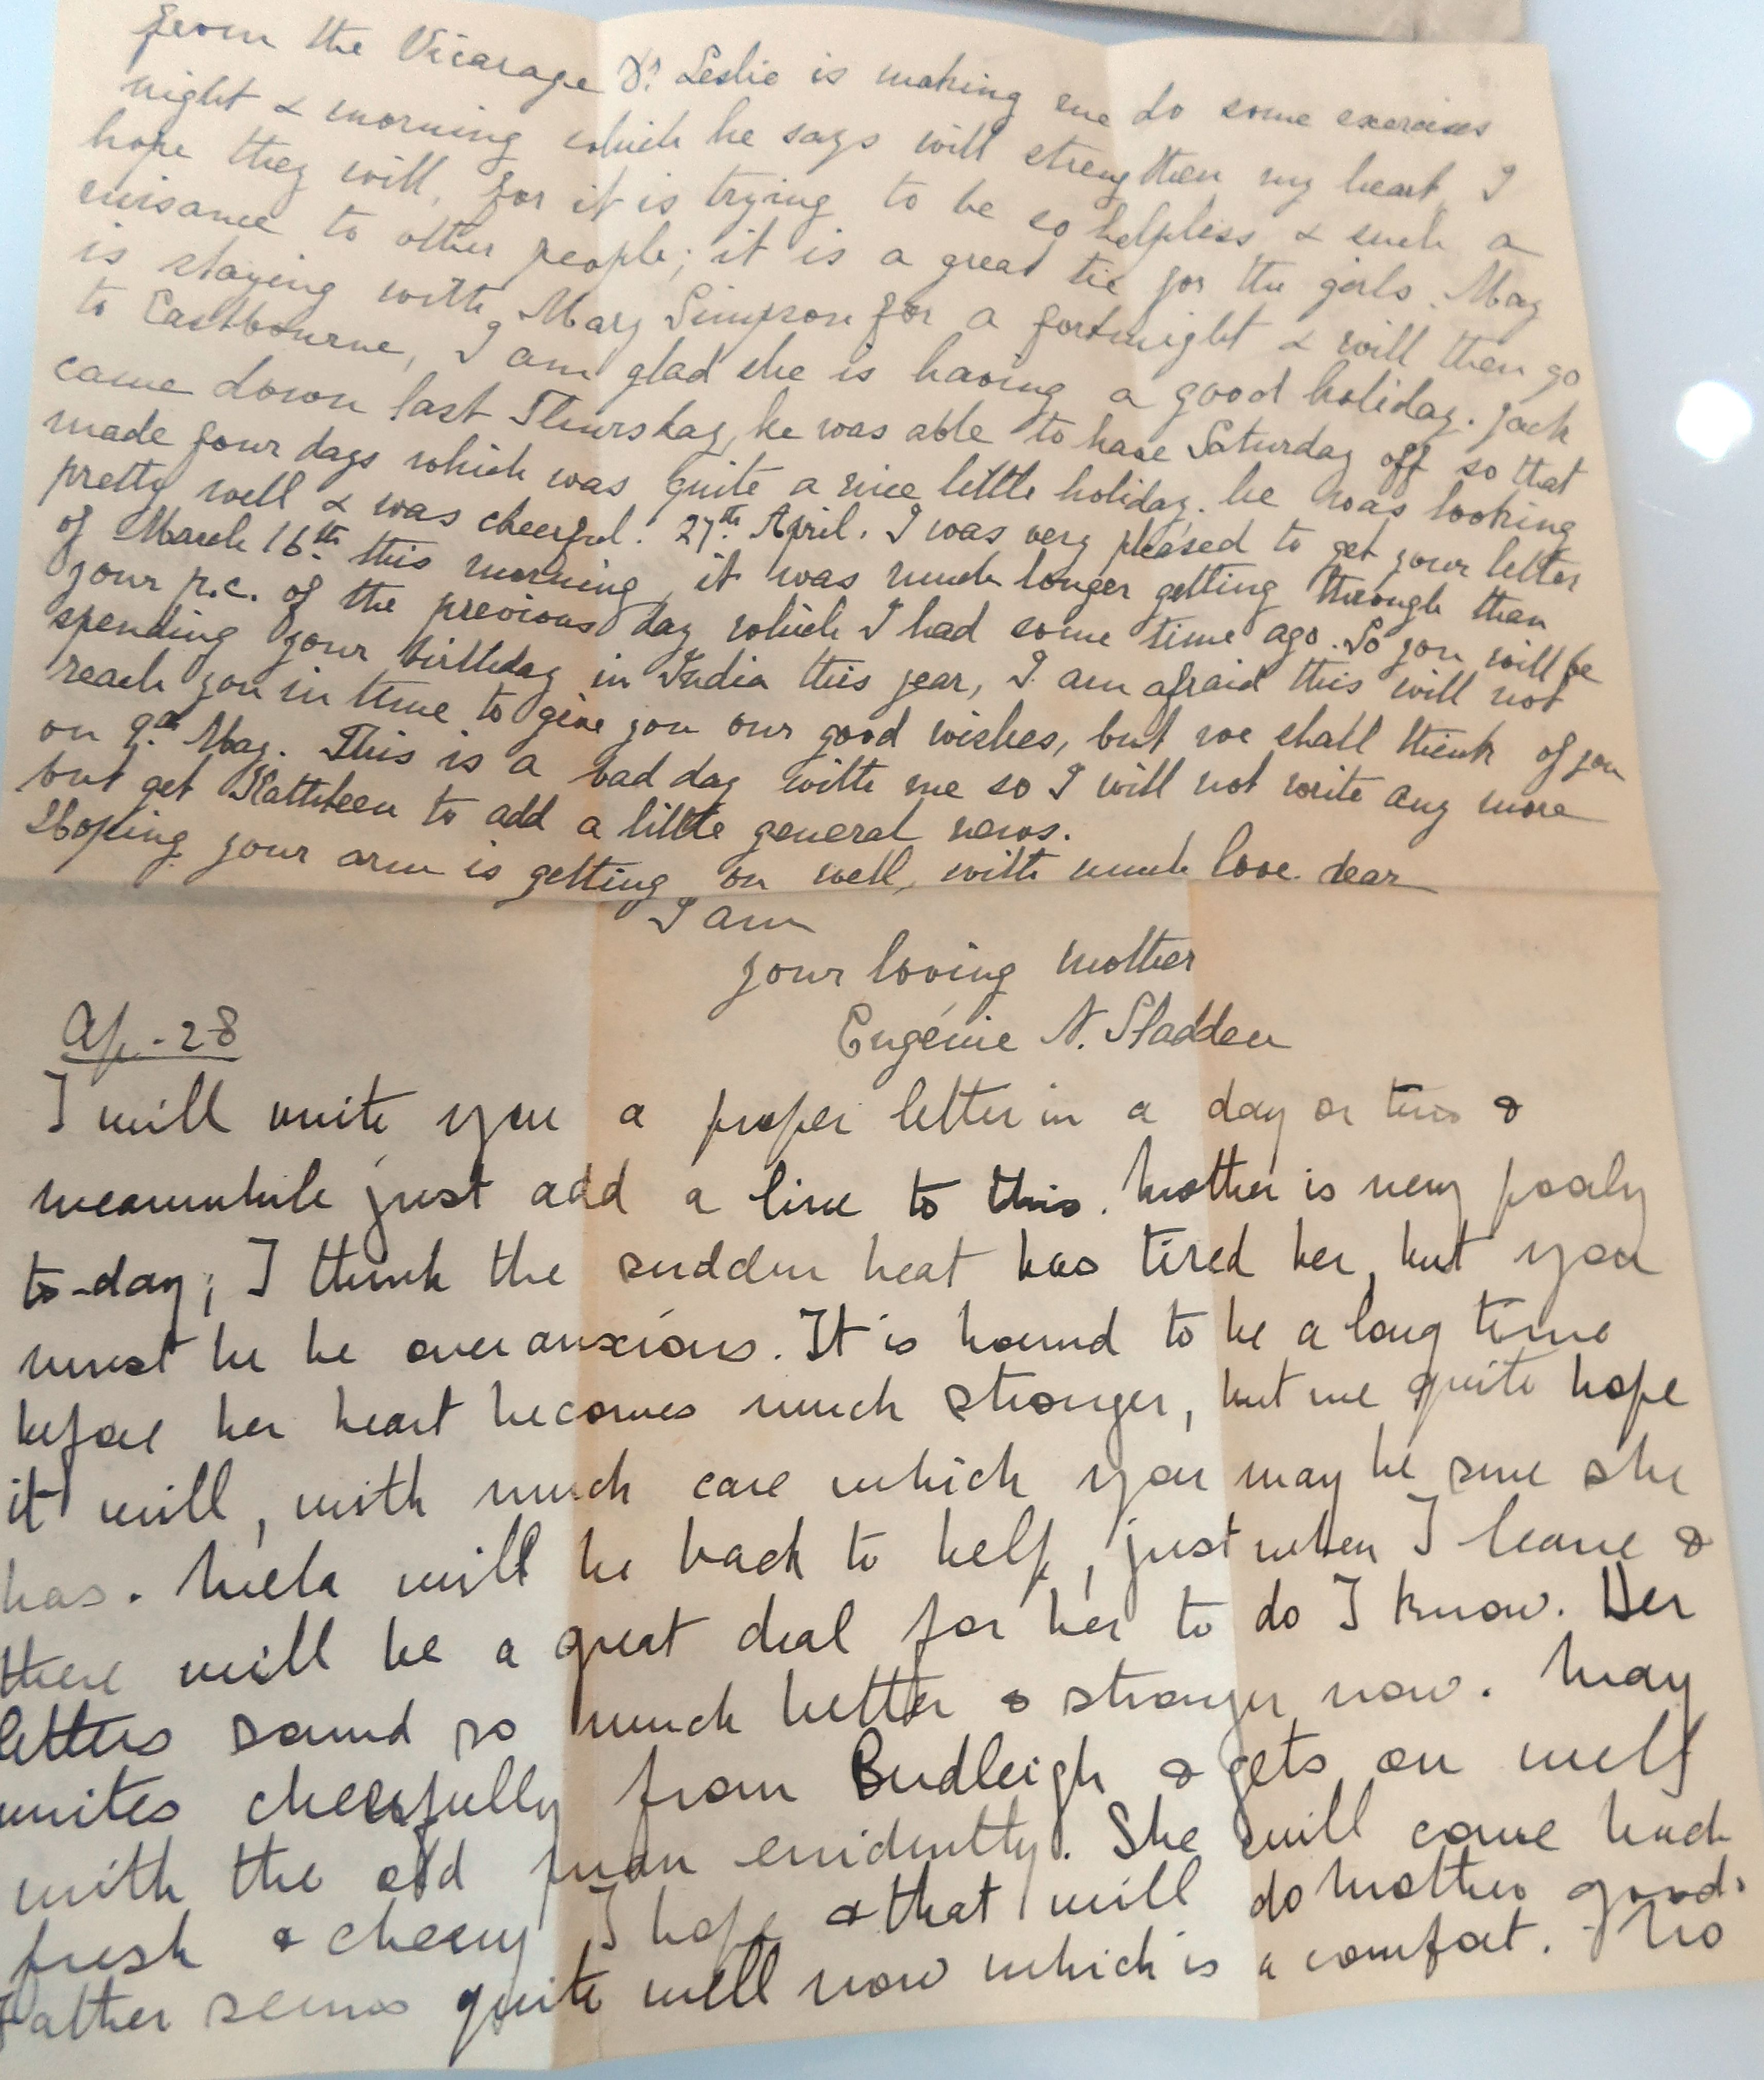 from the Vicarage Dr. Leslie is making me do some exercises
night & morning which he says will strengthen my heart, I
hope they will, for it is trying to be so helpless & such a
nuisance to other people; it is a great tie for the girls. May
is staying with Mary Simpson for a fortnight & will then go
to Eastbourne, I am glad she is having a good holiday. Jack
came down last Thursday, he was able to have Saturday off so that
made four days which was quite a nice little holiday. he was looking
pretty well & was cheerful. 27th. April. I was very pleased to get your letter
of March 16th. this morning, it was much longer getting through than
your p.c. of the previous day which I had some time ago. So you will be
spending your birthday in India this year, I am afraid this will not
reach you in time to give you our good wishes, but we shall think of you
on 9th. May. This is a bad day with me so I will not write any more
but get Kathleen to add a little general news.
Hoping your arm is getting on well, with much love dear
I am
your loving mother
Eugénie N. Sladden
Ap. 28
I will write you a proper letter in a day or two &
meanwhile just add a line to this. Mother is very poorly
to-day; I think the sudden heat has tired her, but you
must be be over anxious. It is bound to be a long time
before her heart becomes much stronger, but we quite hope
it will, with much care which you may be sure she
has. Mela will be back to help, just when I leave &
there will be a great deal for her to do I know. Her
letters sound so much better & stronger now. May
writes cheerfully from Budleigh & gets on well
with the old man evidently. She will come back
fresh & cheery I hope & that will do Mother good.
Father seems quite well now which is a comfort. No